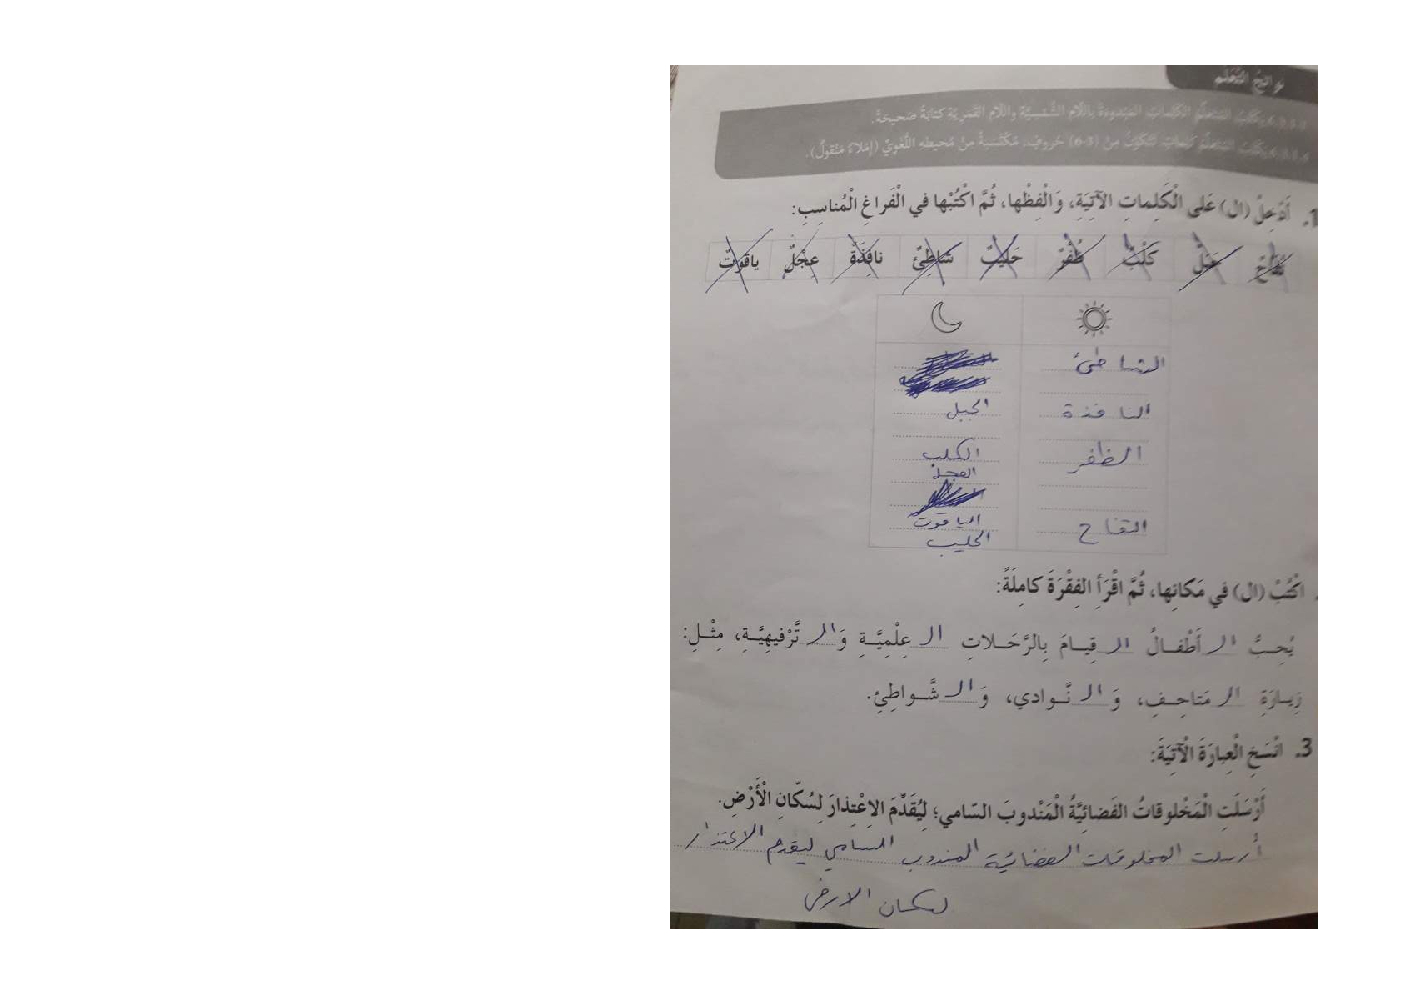 نواتج التعلم
يكتب المتعلم الكلمات المبدوءة باللام الشمسية واللام القمرية كتابة صحيحة.
يكتب المتعلم كلمات تتكون من (3-6) حروف، مكتسبة من محيطه اللغوي (إملاء منقول).
1. أَدْخِلْ (ال) عَلى الْكَلِماتِ الآتِيَةِ، وَالْفِظْها، ثُمَّ اكْتُبْها في الْفَراغِ الْمُناسِبِ:
تُفّاحٌ جَبَلٌ كَلْبٌ ظُفْرٌ حَليبٌ شاطِئٌ نافِذَةٌ عِجْلٌ ياقوتٌ
الشاطئ
النافذة الجبل
الظفر الكلب
العجل
التفاح الياقوت
الحليب
اكْتُبْ (ال) في مَكانِها، ثُمَّ اقْرَأِ الفِقْرَةَ كامِلَةً:
يُحِبُّ الـ أَطْفالُ الـ قِيامَ بِالرَّحَلاتِ الـ عِلْمِيَّةِ وَالـ تَّرْفيهِيَّةِ، مِثْلِ:
زِيارَةِ الـ مَتاحِفِ، وَ الـ نَّوادي، وَ الـ شَّواطِئِ.
3. انْسَخِ الْعِبارَةَ الْآتِيَةَ:
أَرْسَلَتِ الْمَخْلوقاتُ الفَضائِيَّةُ الْمَنْدوبَ السّامي؛ لِيُقَدِّمَ الاِعْتِذارَ لِسُكّانِ الْأَرْضِ.
أرسلت المخلوقات الفضائية المندوب السامي ليقدم الاعتذار
لسكان الارض